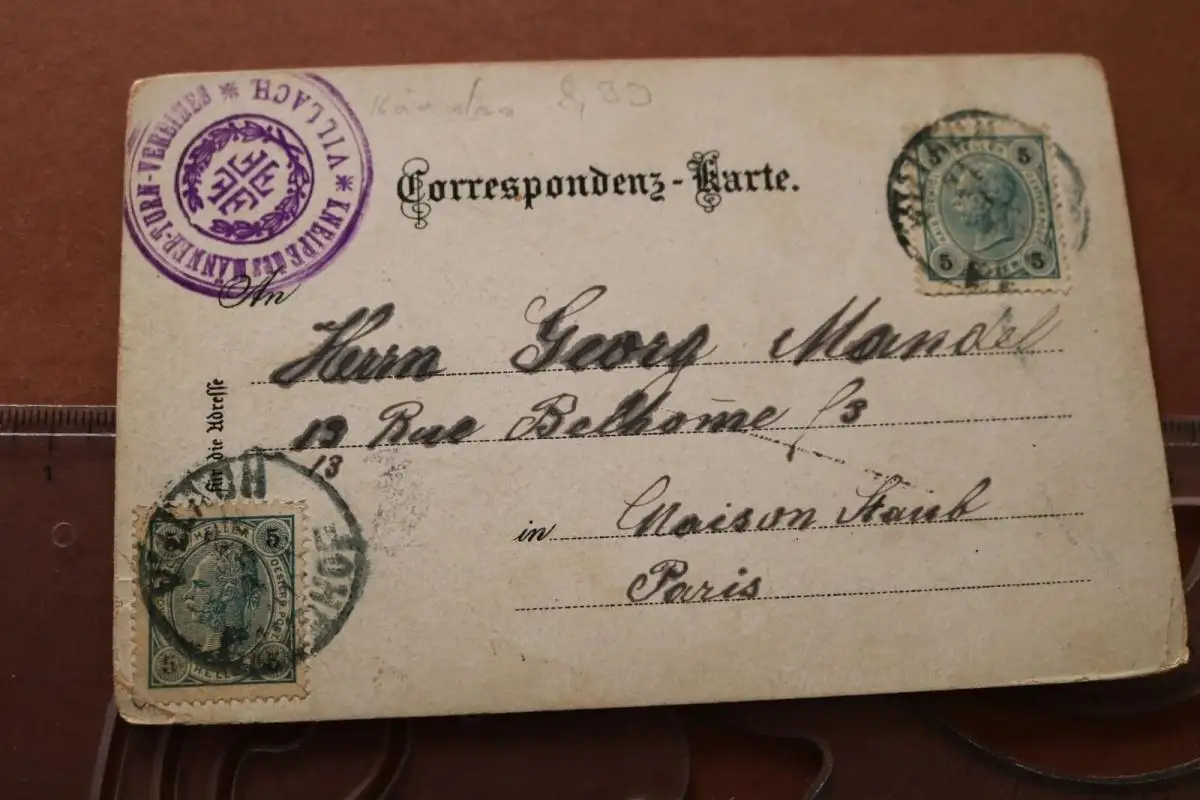 * VILLACH * KNEIPE DES MÄNNER-TURN-VEREINES
Correspondenz-Karte.
An
Herrn Georg Mandel
19 Rue Belhome
13
für die Adresse
in Maison Staub
Paris
5 HELLER 5
5 5
5 HELLER 5
5 HELLER 5
VILLACH
BAHNHOF
1